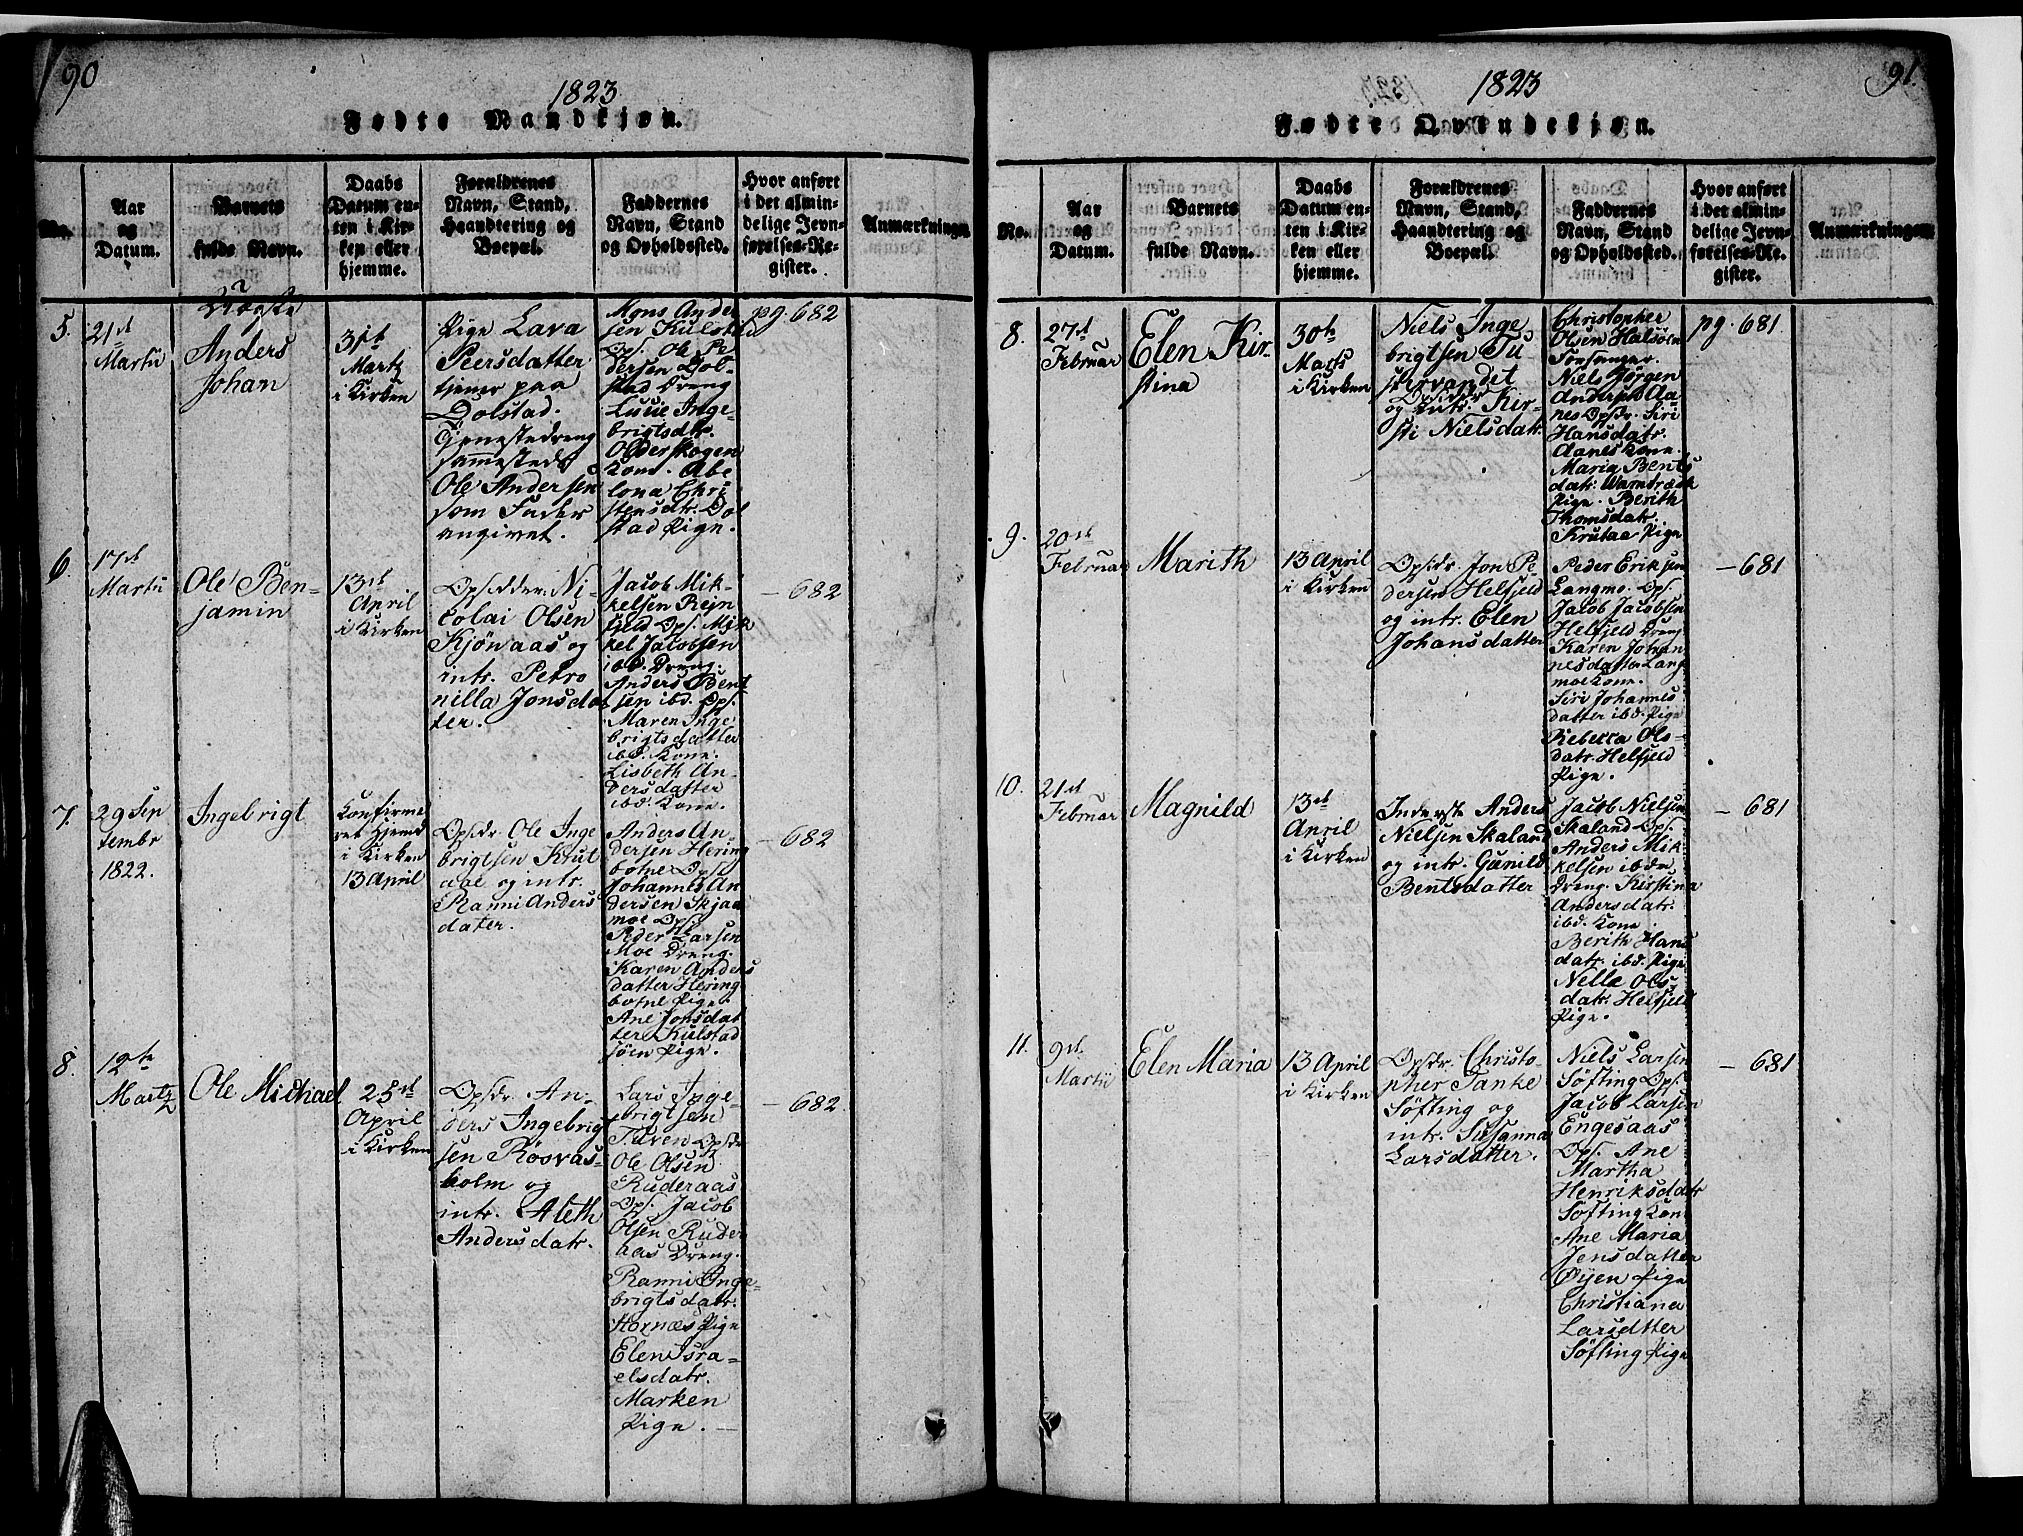 90
1823
Fødte Mandkjøn.
No.
Aar
og
Datum.
Barnets
fulde Navn.
Daabs
Datum en-
ten i Kir-
ken eller
hjemme.
Forældrenes
Navn, Stand,
Haandtering og
Boepæl.
Faddernes
Navn, Stand
og Opholdssted.
Hvor anført
i det almin-
delige Jevn-
førelses-Re-
gister.
Anmærkninger.
5.
21de
Martii
Uægte
Anders
Johan
31te
Marts
i Kirken
Pige Lava
Peersdatter
tjener paa
Dolstad.
Tjenestedreng
sammesteds
Ole Andersen
som Fader
angivet.
Mons Ander
sen Kulstad
Ops. Ole Pe
dersen Dol-
stad Dreng
Lusie Inge-
brigtsdtr.
Olderskogen
Kone. Abe
lona Chri
stensdtr. Dol
stad Pige.
pg. 682
6.
17de
Martii
Ole Ben-
jamin
13de
April
i Kirken
Opsidder Ni-
colai Olsen
Kjønaas og
intr. Petro
nilla Jonsdat
ter.
Jacob Mik-
kelsen Rejn
fjeld Ops. Mik
kel Jacobsen
ibd. Dreng.
Anders Bent
sen ibd. Ops.
Maren Inge
brigtsdatter
ibd. Kone.
Lisbeth An-
dersdatter
ibd. Kone.
- 682
7.
29 Sep
tembr
1822.
Ingebrigt
Confirme
ret hjemed
i Kirken
13 April
Opsdr. Ole Inge
brigtsen Krut
aae og intr.
Ranni Anders
dater.
Anders An
dersen Hering
botne Ops.
Johannes An
dersen Skjaa
moe Ops.
Peder Larsen
Moe Dreng.
Karen Anders
datter Hering
botne Pige.
Ane Jonsdat
ter Kulstad
sjöen Pige.
- 682
8.
12te
Martz
Ole Michael
25de
April
i Kirken
Opsdr. An-
ders Ingebrigt
sen Rösvas-
holm og
intr. Aleth
Andersdatr.
Lars Inge-
brigtsen
Tuven Opsdr.
Ole Olsen
Ruderaas
Ops. Jacob
Olsen Ruder
aas Dreng.
Ranni Inge-
brigtsdatr.
Hornæs Pige
Elen Isra-
elsdatr.
Marken
Pige.
- 682.
91.
1823
Fødte Qvindekjøn.
No.
Aar
og
Datum.
Barnets
fulde Navn.
Daabs
Datum en-
ten i Kir-
ken eller
hjemme.
Forældrenes
Navn, Stand,
Haandtering og
Boepæl.
Faddernes
Navn, Stand
og Opholdssted.
Hvor anført
i det almin-
delige Jevn-
førelses-Re-
gister.
Anmærkninger.
8.
27de
Februar
Elen Kir-
stina
30te
Marts
i Kirken
Niels Inge
brigtsen Tu
skervandet
Opsiddr
og intr. Kir-
sti Nielsdatr.
Christopher
Olsen Halsöen
Forsanger.
Niels Jörgen
Anderse Aa-
nes Opsdr. Siri
Hansdatr.
Aanes Kone.
Maria Bents
datr. Warnbræk
Pige. Berith
Thomsdatr.
Krutaa Pige
pg. 681.
9.
20de
Februar
Marith
13 April
i Kirken
Opsidr. Jon Pe
dersen Helfjeld
og intr. Elen
Johansdatter
Peder Eriksen
Langmo. Ops.
Jacob Jacobsen
Helfjeld Dreng
Karen Johan
nesdatter Lang
moe Kone.
Siri Johannes
datter ibd. Pige
Rebecca Ols-
datr. Helfjeld
Pige.
- 681
10.
21de
Februar
Magnild
13de
April
i Kirken
Inderste Anders
Nielsen Skaland
og intr. Gunild
Bentsdatter
Jacob Nielsen
Skaland Ops.
Anders Mik-
kelsen ibdm
Dreng. Kirstina
Andersdatr.
ibd. Kone.
Berith Hans
datr. ibd. Pige
Nella Ols-
datr. Helfjeld
Pige.
- 681
11.
9de
Martii
Elen Maria
13 April
i Kirken
Opsdr. Christo-
pher Tanke
Söfting og
intr. Susanna
Larsdatter.
Niels Larsen
Söfting Ops.
Jacob Larsen
Engesaas
Ops. Ane
Martha
Henriksdatr
Söfting Kone
Ane Maria
Jensdatter
Öyen Pige
Christiana
Larsdtter
Söfting Pige
- 681